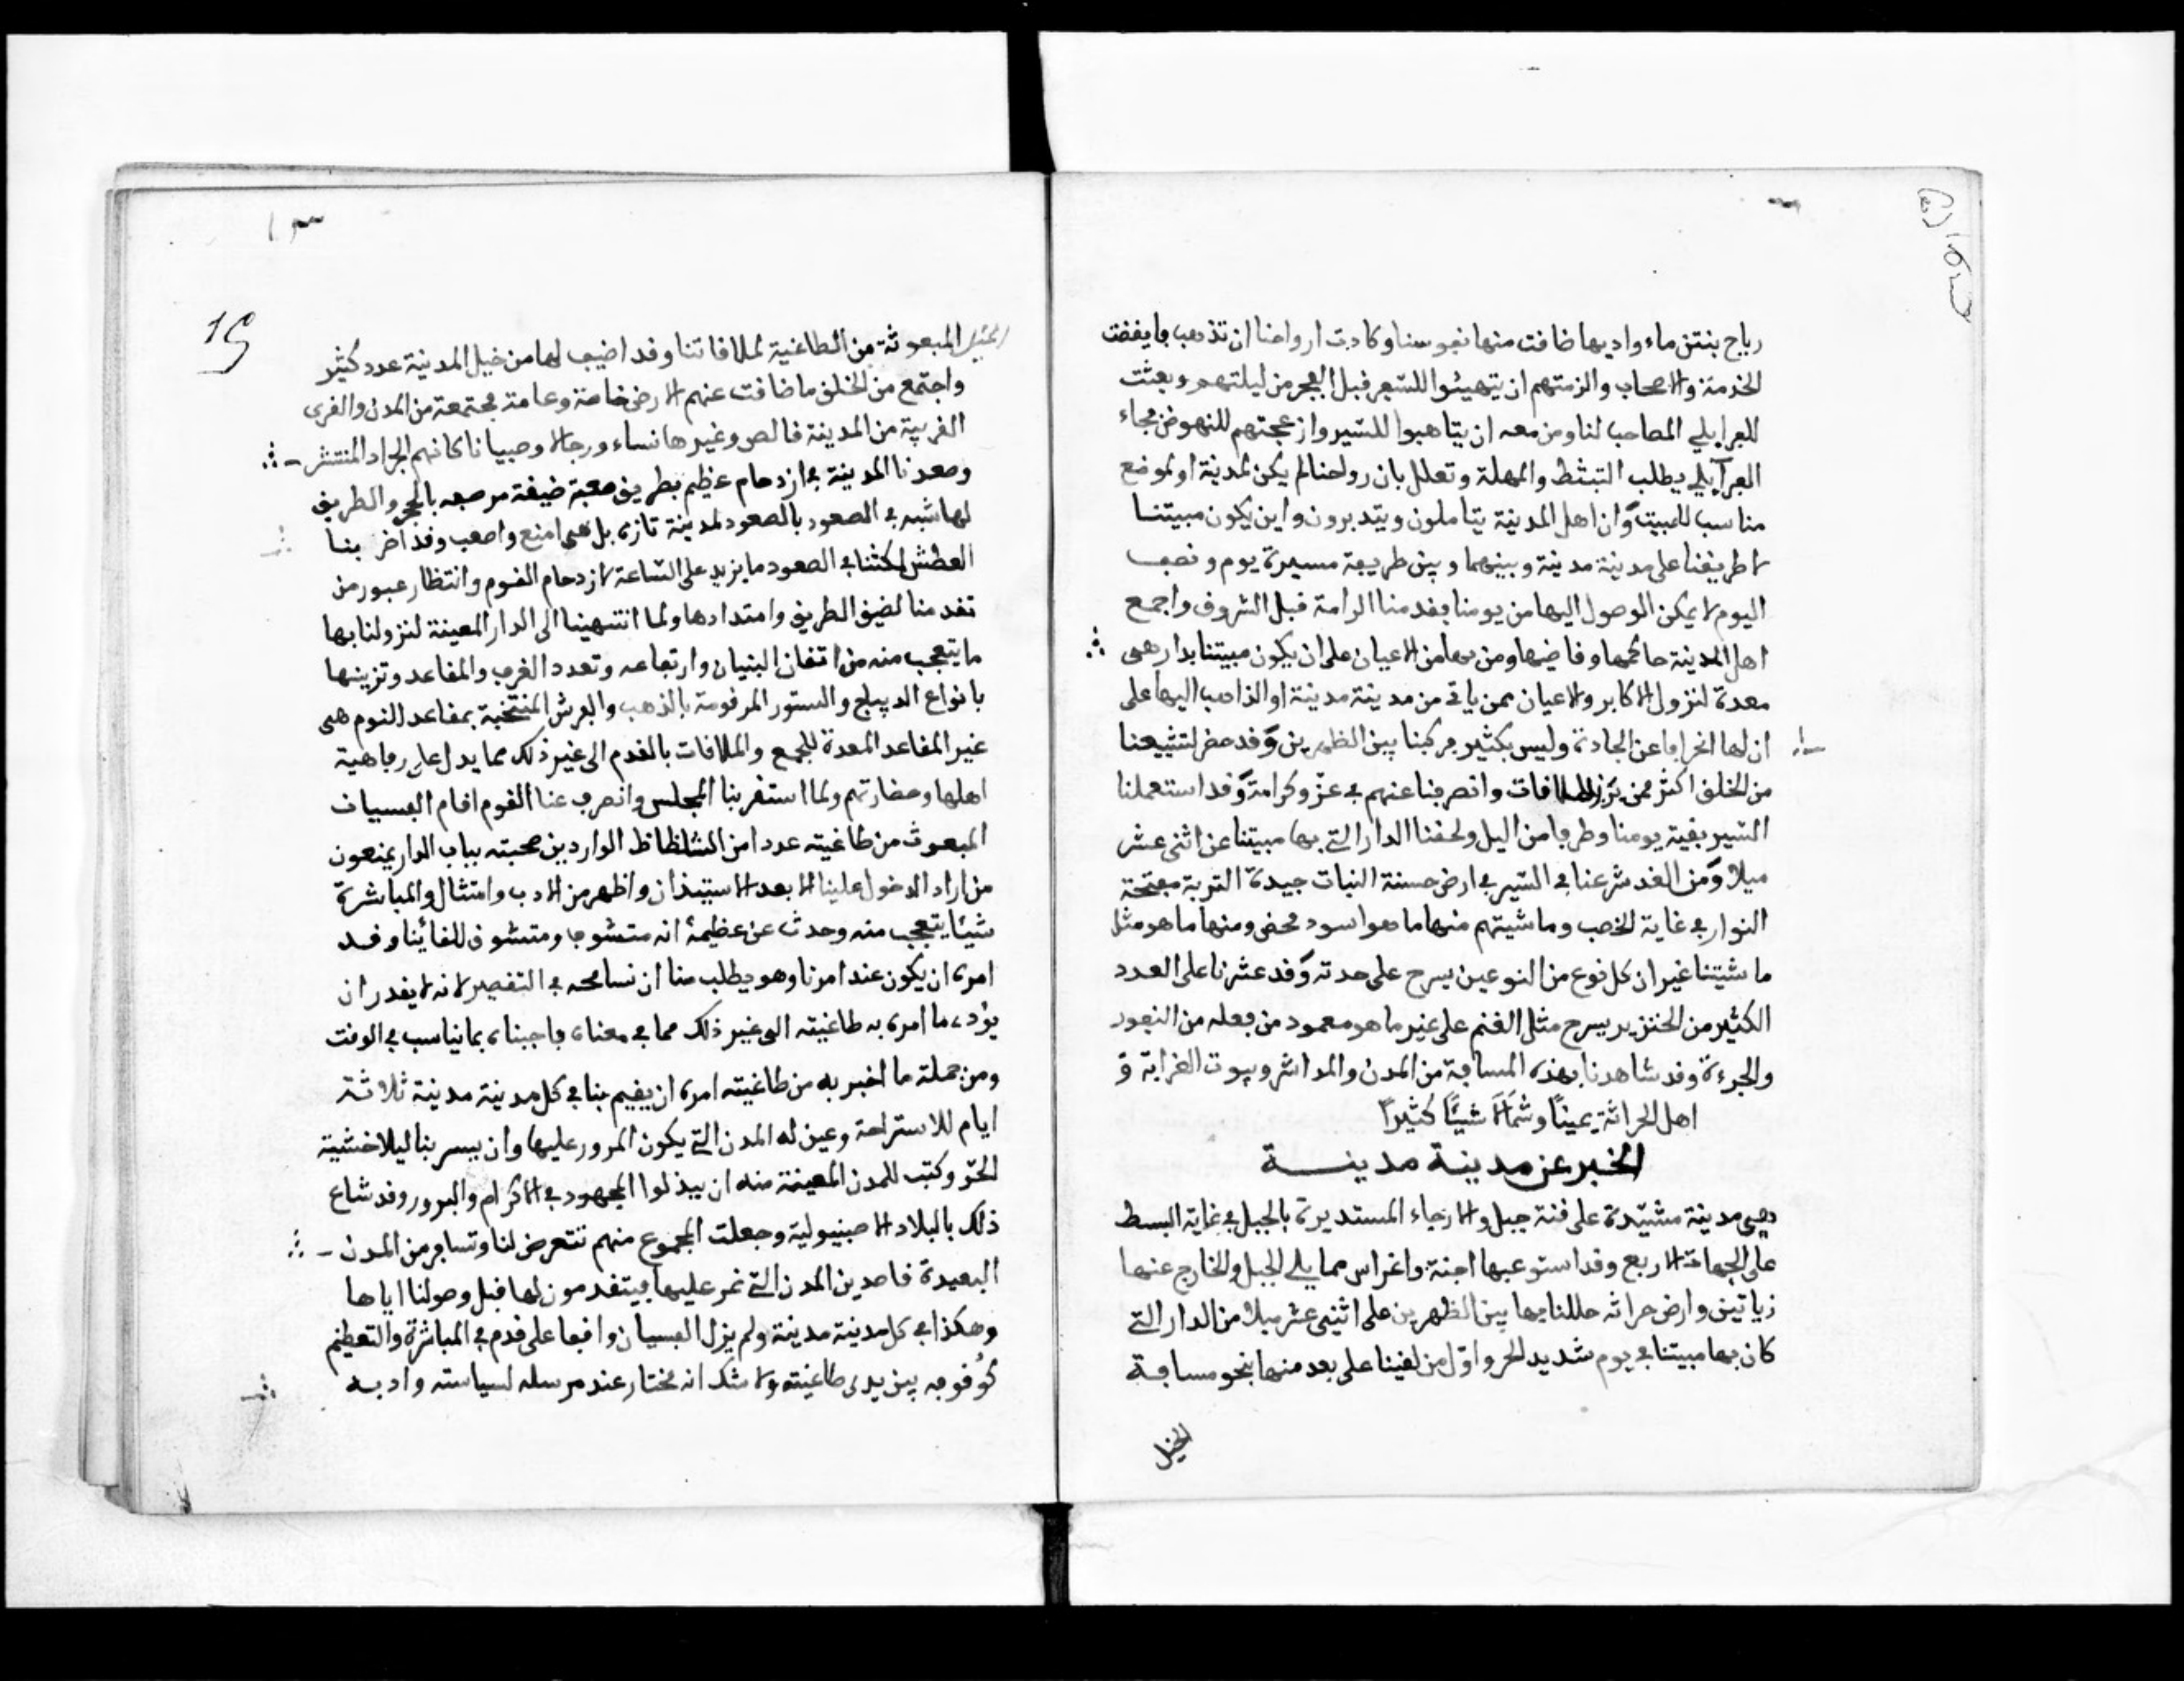 رياح بنتن ماء واديها ضاقت منها نفوسنا وكادت ارواحنا ان تذهب فايقضت
الخدمة والاصحاب والزمتهم ان يتهيئوا للسفر قبل الفجر من ليلتهم وبعثت
للفرايلي المصاحب لنا ومن معه ان يتاهبوا للسير وازعجتهم للنهوض فجاء
الفرايلي يطلب التبثط والمهلة وتعلل بان رواحنا لم يكن لمدينة او لموضع
مناسب للمبيت وان اهل المدينة يتاملون ويتدبرون واين يكون مبيتنا
لا طريقنا على مدينة مدينة وبينهما وبين طريفة مسيرة يوم ونصف
اليوم لا يمكن الوصول اليها من يومنا بقدمنا الرامة قبل الشروق واجمع
اهل المدينة حاكمها وقاضيها ومن بها من الاعيان على ان يكون مبيتنا بدار هى
معدة لنزول الاكابر والاعيان ممن ياتى من مدينة مدينة او الذاهب اليها على
ان لها انحرافا عن الجادة وليس بكثير فركبنا بين الظهرين وقد حضر لتشييعنا
من الخلق اكثر ممن برز للملاقات وانصرفنا عنهم في عز وكرامة وقد استعملنا
السير بقية يومنا وطرفا من اليل ولحقنا الدار التي بها مبيتنا عن اثنى عشر
ميلا ومن الغد شرعنا في السير في ارض حسنة النبات جيدة التربة مفتحة
النوار في غاية الخصب وماشيتهم منها ما هو اسود محض ومنها ما هو مثل
ماشيتنا غير ان كل نوع من النوعين يسرح على حدته وقد عثرنا على العدد
الكثير من الخنزير يسرح مثل الغنم على غير ما هو معهود من فعله من النفور
والجرءة وقد شاهدنا بهذه المسافة من المدن والمداشر وبيوت الغرابة و
اهل الحراثة يمينًا وشمالًا شيئًا كثيرًا
الخبر عن مدينة مدينة
وهى مدينة مشيدة على قنة جبل والارجاء المستديرة بالجبل في غاية البسط
على الجهات الاربع وقد استوعبها اجنة واغراس مما يلي الجبل والخارج عنها
زياتين وارض حراثه حللنا بها بين الظهرين على اثنى عشر ميلا من الدار التي
كان بها مبيتنا في يوم شديد الحر واول من لقينا على بعد منها بنحو مسافة
الخيل
13
15
الخيل المبعوثة من الطاغية لملاقاتنا وقد اضيف لها من خيل المدينة عدد كثير
واجتمع من الخلق ما ضاقت عنهم الارض خاصة وعامة مجتمعة من المدن والقرى
القريبة من المدينة فالص وغيرها نساء ورجالا وصبيانا كانهم الجراد المنتشر
وصعدنا المدينة في ازدحام عظيم بطريق صعبة ضيقة مرصعه بالحجر والطريق
لها شبه في الصعود بالصعود لمدينة تازه بل هى امنع واصعب وقد اضر بنا
العطش لمكثنا في الصعود ما يزيد على الساعة لازدحام القوم وانتظار عبور من
تقدمنا لضيق الطريق وامتدادها ولما انتهينا الى الدار المعينة لنزولنا بها
ما يتعجب منه من اتقان البنيان وارتفاعه وتعدد الغرف والمقاعد وتزينها
بانواع الديباج والستور المرقومة بالذهب والفرش المنتخبة بمقاعد للنوم هى
غير المقاعد المعدة للجمع والملاقات بالقدم الى غير ذلك مما يدل على رفاهية
اهلها وحضارتهم ولما استقر بنا المجلس وانصرف عنا القوم اقام الفسيان
المبعوث من طاغيته عددا من الشلظاظ الواردين صحبته بباب الدار يمنعون
من اراد الدخول علينا الا بعد الاستيذان واظهر من الادب وامتثال والمباشرة
شيئا يتعجب منه وحدث عن عظيمه انه متشوف ومتشوق للقائنا وقد
امره ان يكون عند امرنا وهو يطلب منا ان نسامحه في التقصير لانه لا يقدر ان
يؤدى ما امره به طاغيته الى غير ذلك مما في معناه فاجبناه بما يناسب في الوقت
ومن جملة ما اخبر به من طاغيته امره ان يقيم بنا في كل مدينة مدينة ثلاثة
ايام للاستراحة وعين له المدن التي يكون المرور عليها وان يسر بنا ليلا خشية
الحر وكتب للمدن المعينة منه ان يبذلوا المجهود في الاكرام والبرور وقد شاع
ذلك بالبلاد الاصبنيولية وجعلت الجموع منهم تتعرض لنا وتسافر من المدن
البعيدة قاصدين المدن التي نمر عليها فيتقدمون لها قبل وصولنا اياها
وهكذا في كل مدينة مدينة ولم يزل الفسيان واقفا على قدم في المباشرة والتعظيم
كوقوفه بين يدى طاغيته ولا شك انه مختار عند مرسله لسياسته وادبه